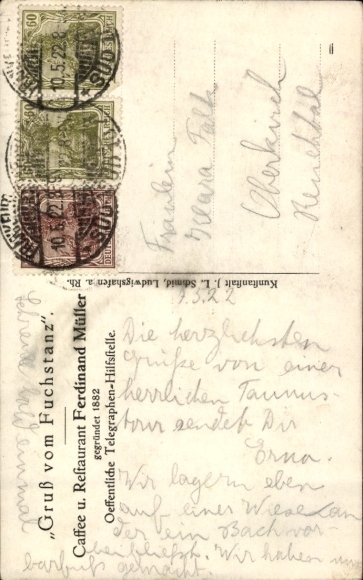 60
60
10.5.22.8
SÜD
Fräulein
Klara Falk
Oberkirch
Renchtal
Kunstanstalt J. L. Schmid, Ludwigshafen a. Rh.
„Gruß vom Fuchstanz“
Caffee u. Restaurant Ferdinand Müller
gegründet 1882
Oeffentliche Telegraphen-Hilfsstelle.
9.5.22
Die herzlichsten
Grüße von einer
herrlichen Taunus-
tour sendet Dir
Erna.
Wir lagern eben
auf einer Wiese an
der ein Bach vor-
beifließt. Wir haben uns
barfuß gemacht.
Schreibe bald einmal